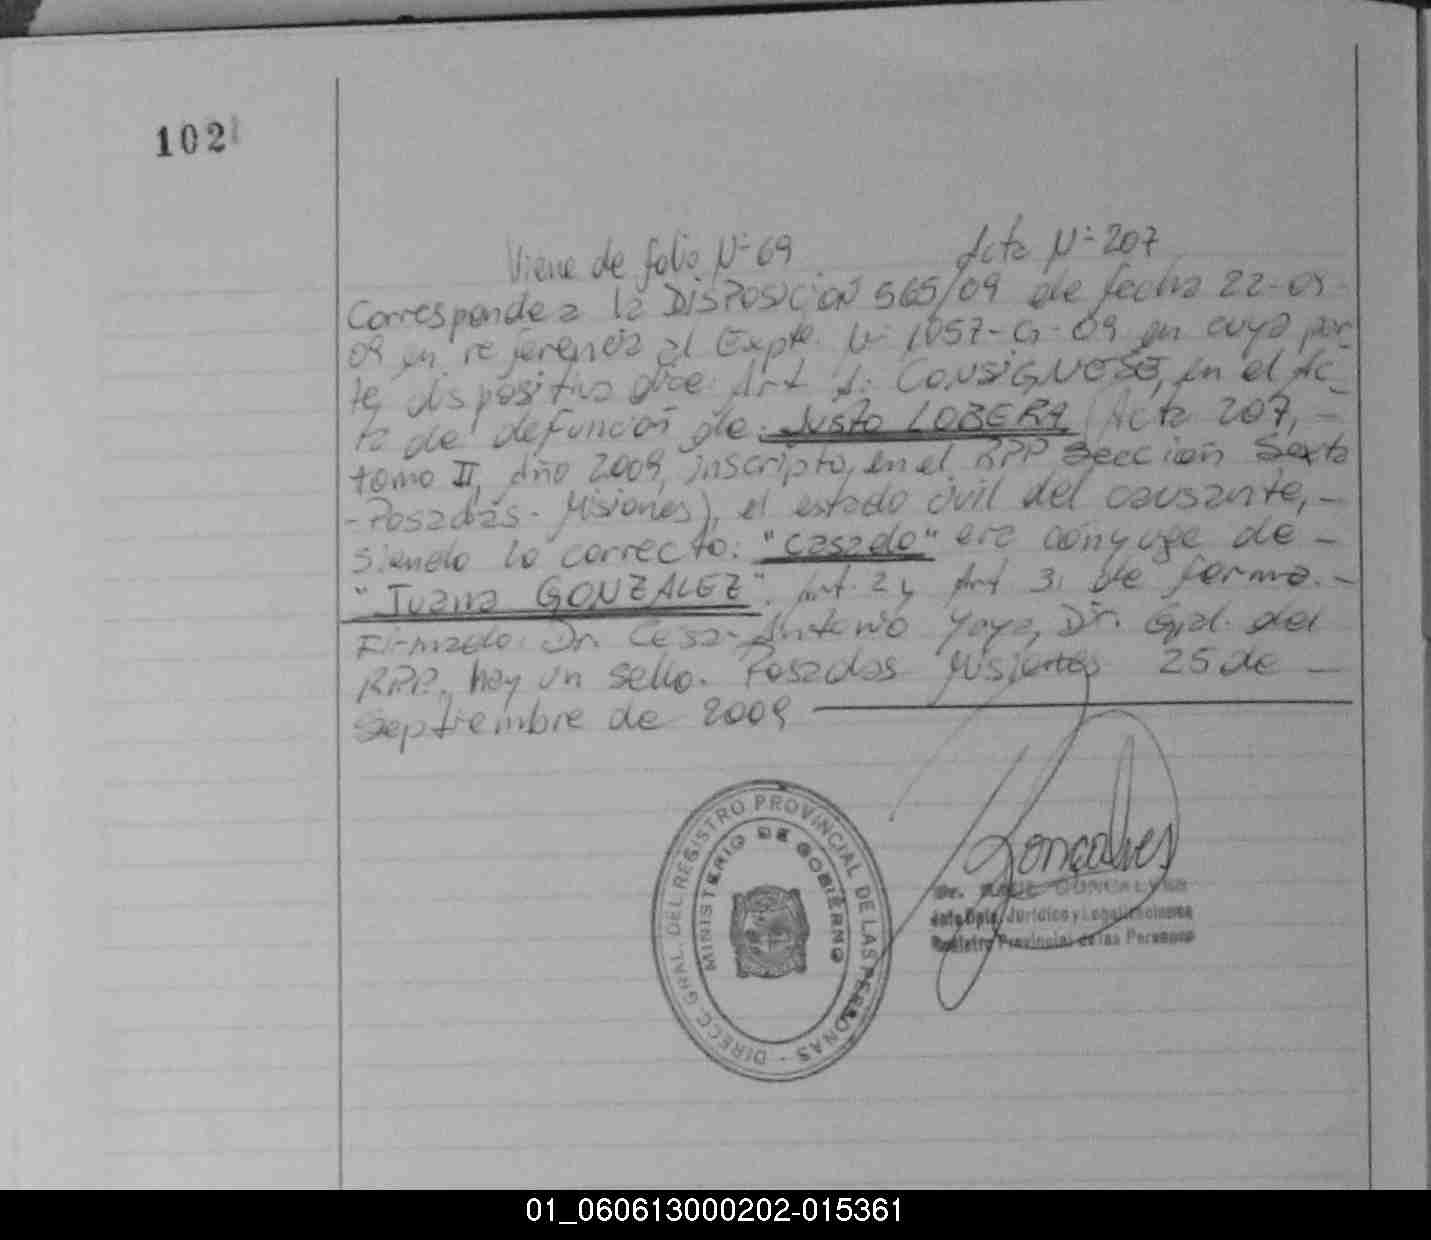 102
Viene de folio Nº 69 Acta Nº 207
Corresponde a la DISPOSICION 565/09 de fecha 22-09-
09 en referencia al Expte. Nº 1057-G-09 en cuya par-
te dispositiva dice: Art 1: CONSIGNESE, en el Ac-
ta de defunción de: Justo LOBERA (Acta 207,-
tomo II, año 2009, inscripto, en el RPP Sección Sexta
-Posadas- Misiones), el estado civil del causante,-
siendo lo correcto: "casado" era cónyuge de -
"Juana GONZALEZ". Art. 2 y Art 3. de forma.-
Firmado: Dr. Cesar Antonio Yaya, Dir. Gral. del
RPP. hay un sello. Posadas Misiones 25 de -
Septiembre de 2009
DIRECC. GRAL. DEL REGISTRO PROVINCIAL DE LAS PERSONAS -
MINISTERIO DE GOBIERNO
Goncalves
Dr. GONCALVES
Jefe Dpto. Jurídico y Legalizaciones
Registro Provincial de las Personas
01_060613000202-015361